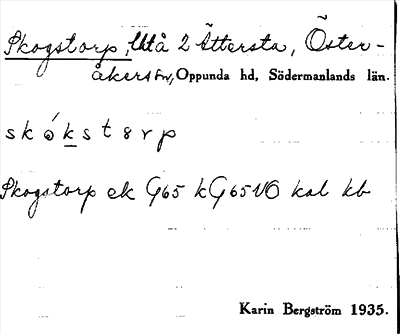 Skogstorp, lht å 2 Ättersta, Öster-
åkers sn, Oppunda hd, Södermanlands län.
skókstorp
Skogstorp ek G65 kG65VO kal kb
Karin Bergström 1935.